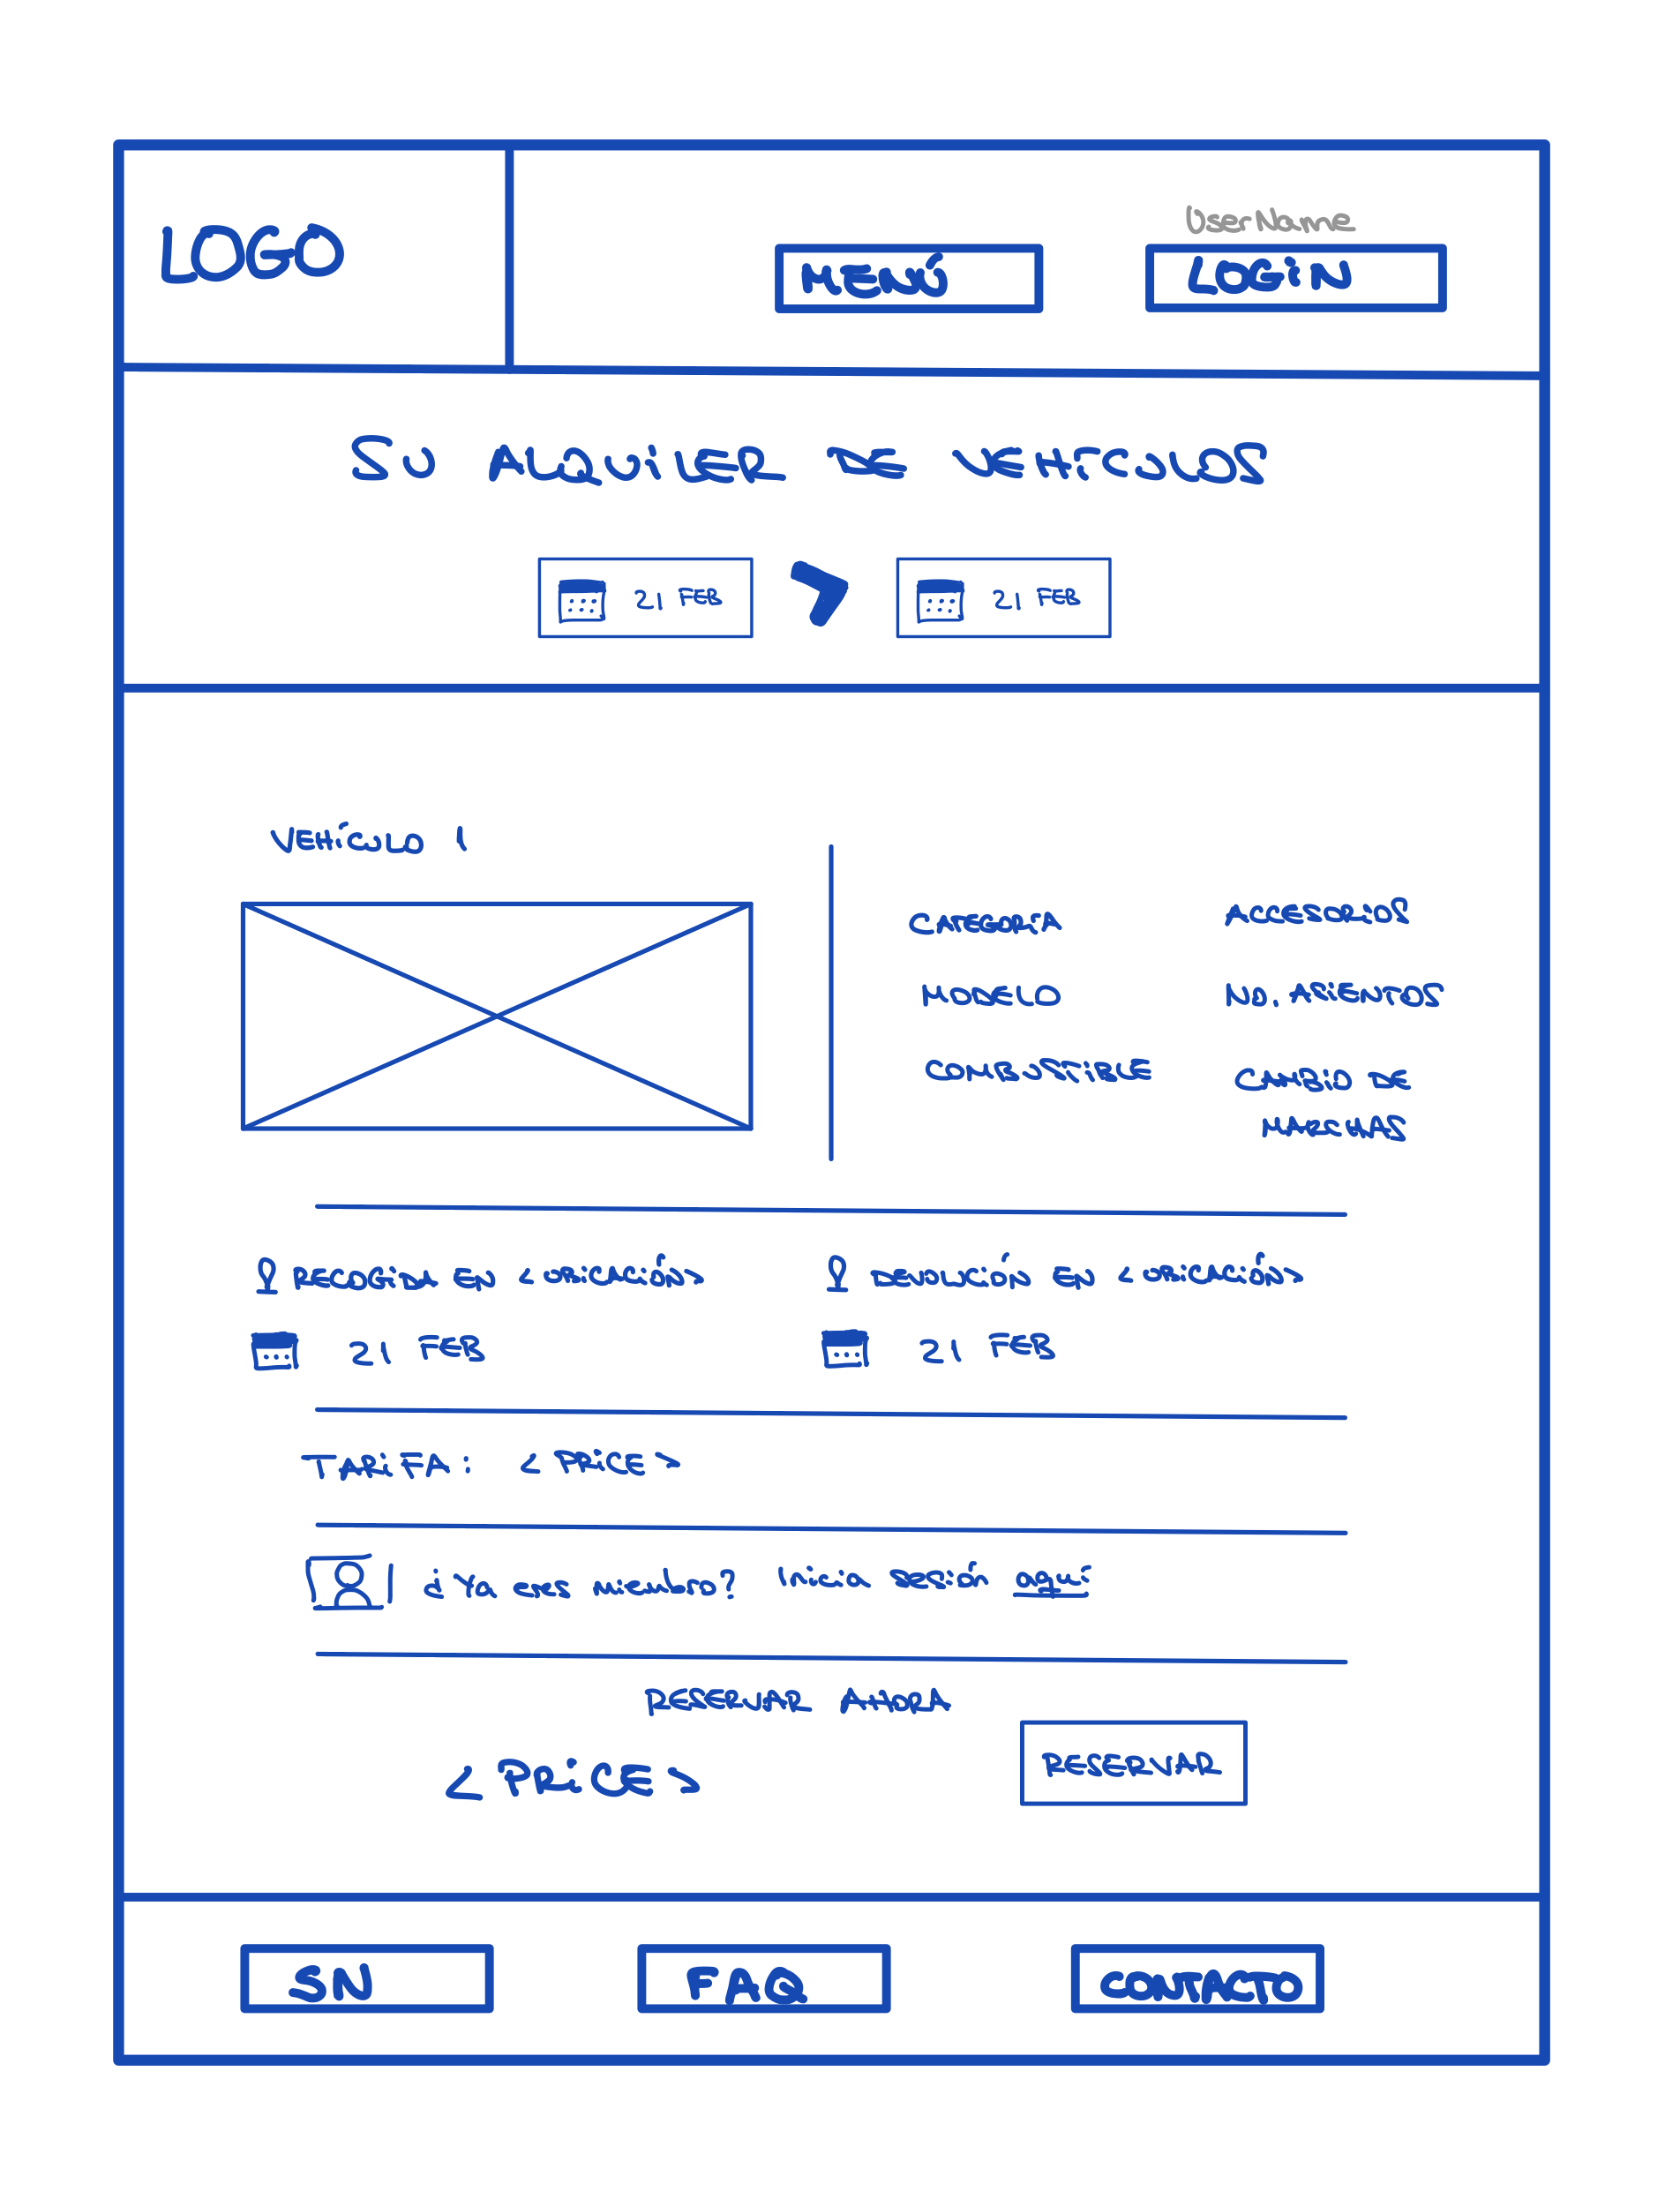 LOGO
UserName
MENÚ
LOGIN
SU ALQUILER DE VEHICULOS
21 FEB
21 FEB
VEHÍCULO 1
CATEGORÍA
ACCESORIOS
MODELO
NO. ASIENTOS
COMBUSTIBLE
CAMBIO DE
MARCHAS
RECOGIDA EN <UBICACIÓN>
DEVOLUCIÓN EN <UBICACIÓN>
21 FEB
21 FEB
TARIFA: <PRICE>
¿Ya eres miembro? Inicia sesión aquí
RESERVAR AHORA
<PRICE>
RESERVAR
SN
FAQ
CONTACTO